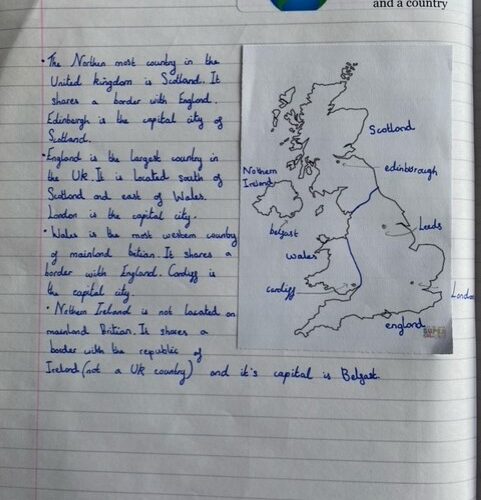 and a country
• The Northen most country in the
United kingdom is Scotland. It
shares a border with England.
Edinburgh is the capital city of
Scotland.
• England is the largest country in
the UK. It is located south of
Scotland and east of Wales.
London is the capital city.
• Wales is the most western country
of mainland britian. It shares a
border with England. Cardiff is
the capital city.
• Nothern Ireland is not located on
mainland Britian. It shares a
border with the republic of
Ireland (not a UK country) and it's capital is Belfast.
Scotland
edinborough
Nothern
Ireland
belfast
Leeds
wales
cardiff
London
england